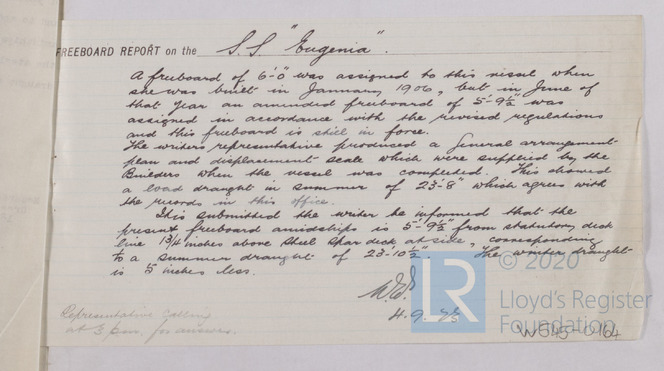 FREEBOARD REPORT on the S.S. "Eugenia".
A freeboard of 6'-0" was assigned to this vessel when
she was built in January 1906, but in June of
that year an amended freeboard of 5'-9½" was
assigned in accordance with the revised regulations
and this freeboard is still in force.
The writers representative produced a general arrangement
plan and displacement scale which were supplied by the
Builders when the vessel was completed. This showed
a load draught in summer of 23'-8" which agrees with
the records in this office.
It is submitted the writer be informed that the
present freeboard amidships is 5'-9½" from statutory deck
line 1¾ inches above steel spar deck at side, corresponding
to a summer draught of 23'-10½". The winter draught
is 5 inches less.
4.9.
Representative calling
at 3 p.m. for answer.
© 2020
LR
Lloyd's Register
Foundation
W545-0164